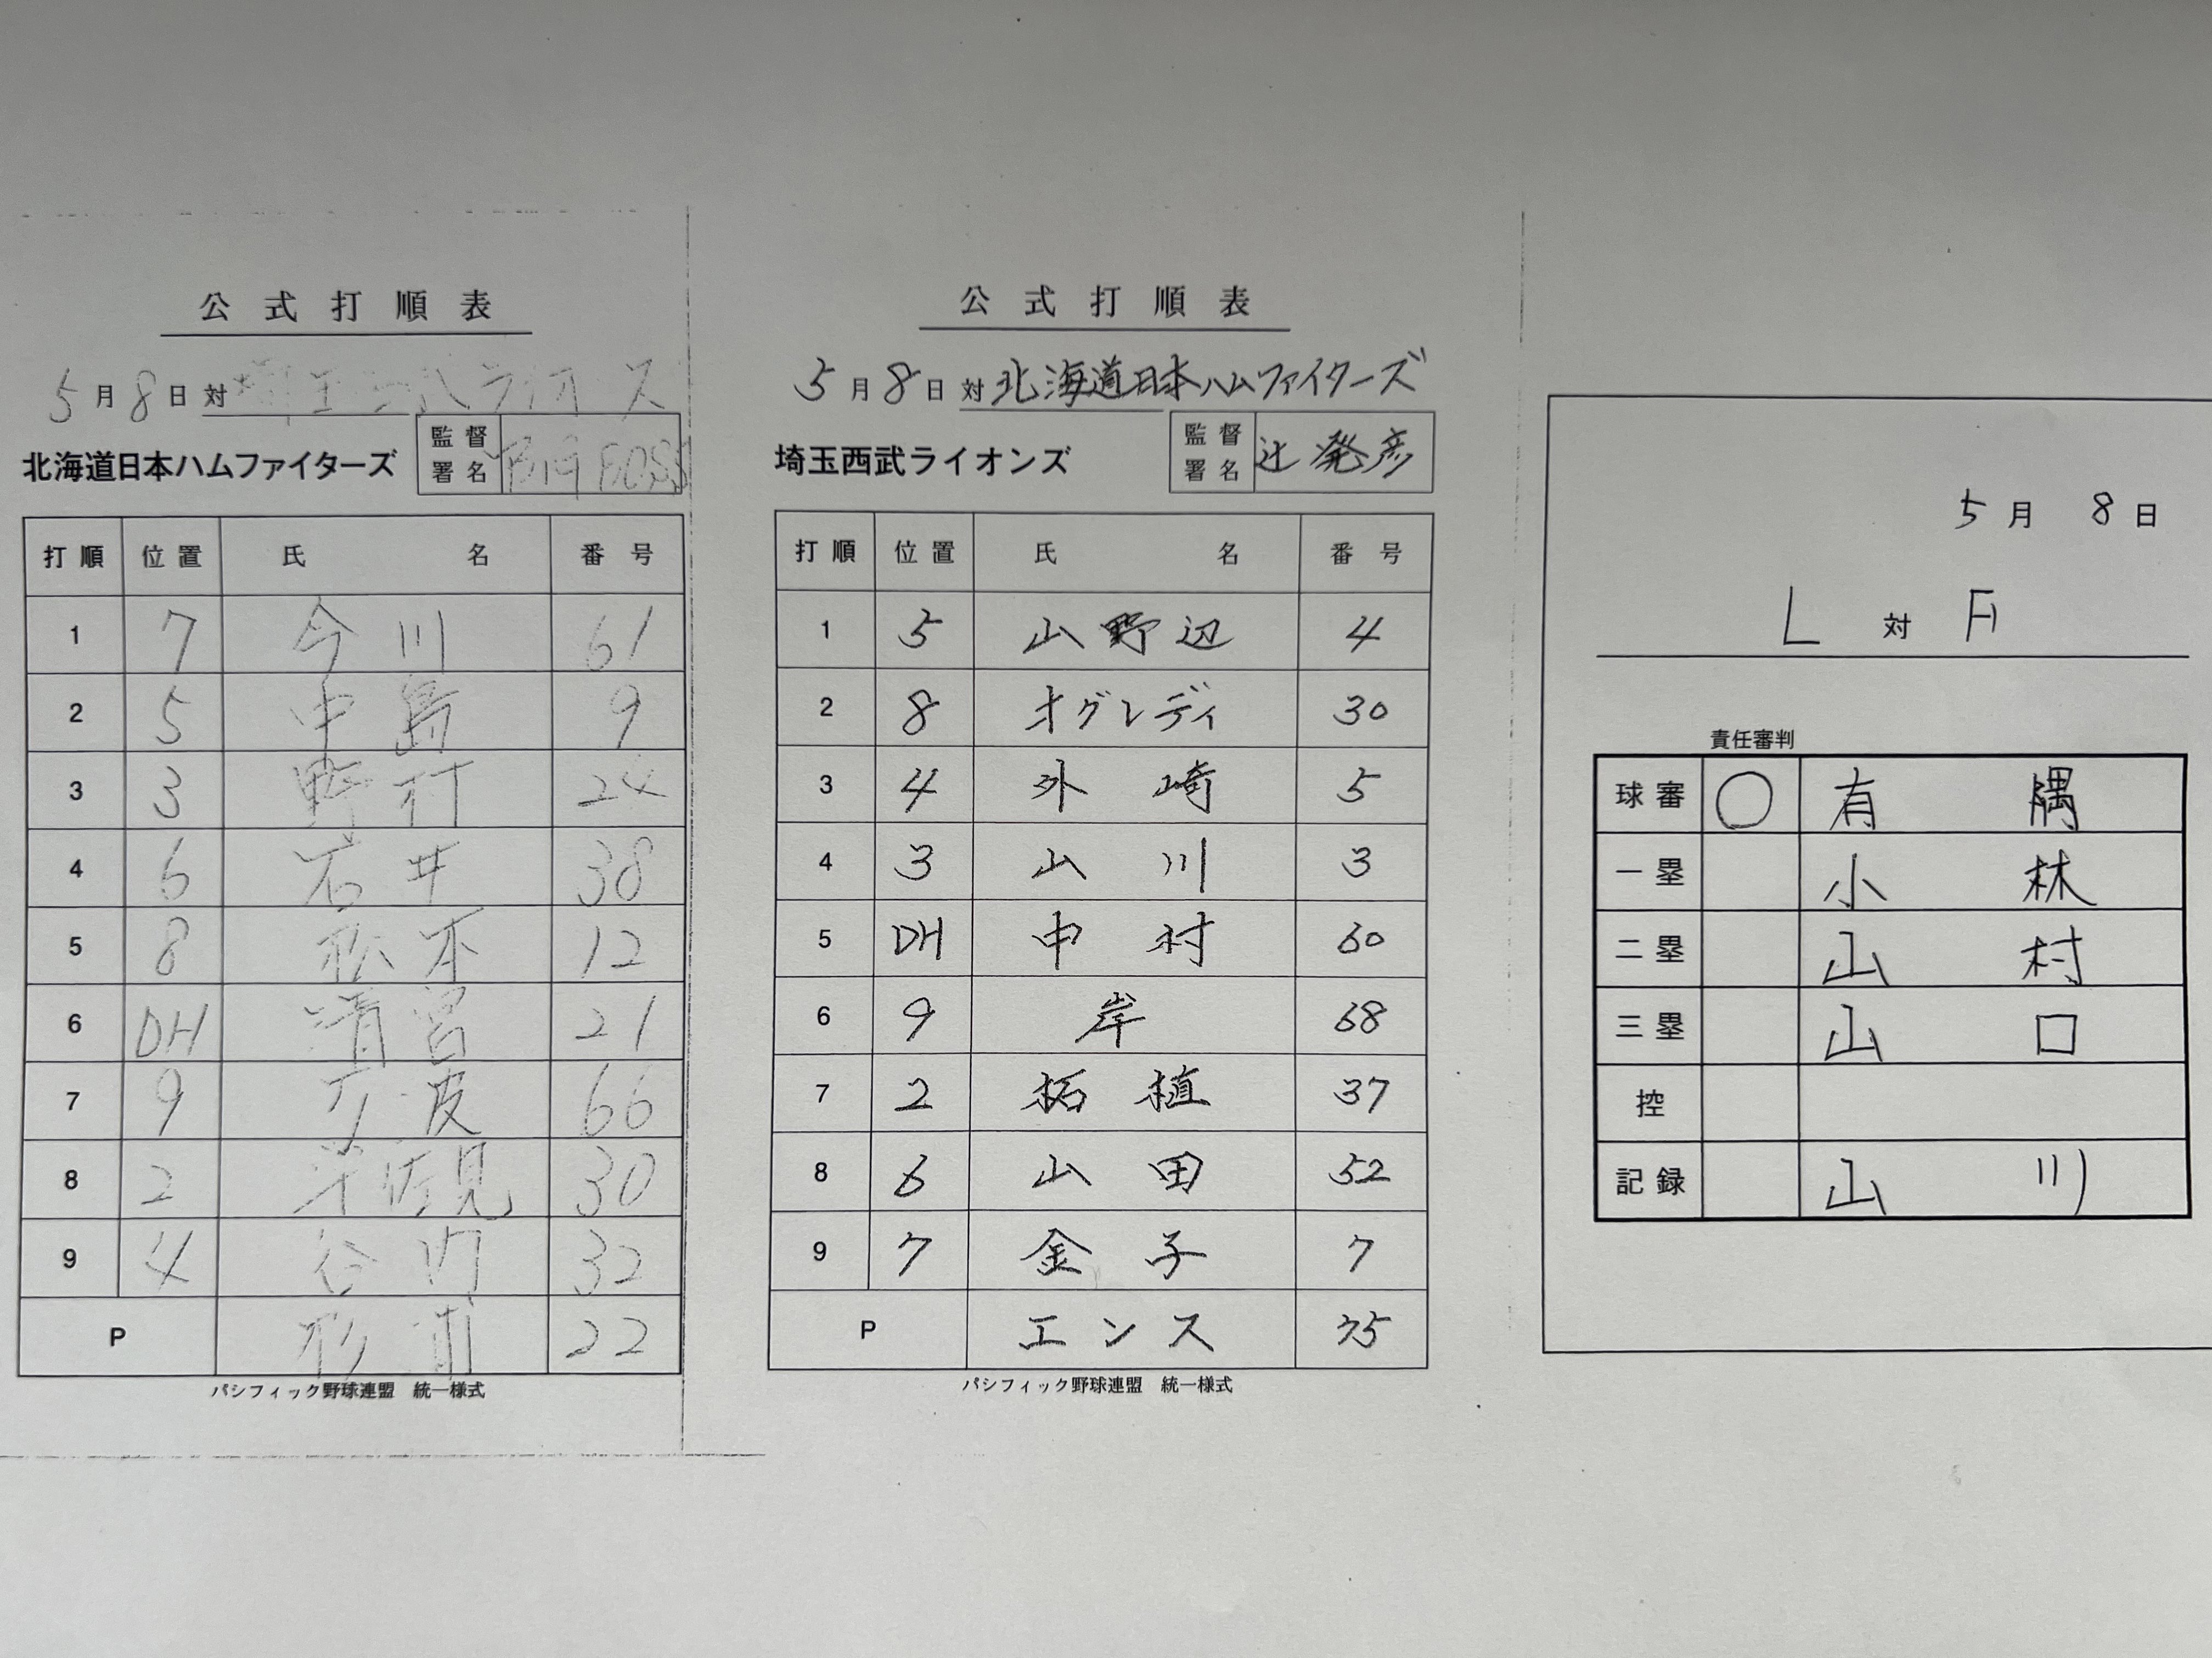 公式打順表
5月8日 対 埼玉西武ライオンズ
北海道日本ハムファイターズ 監督署名 BIG BOSS
打順 位置 氏名 番号
1 7 今川 61
2 5 中島 9
3 3 野村 24
4 6 石井 38
5 8 松本 12
6 DH 清宮 21
7 9 万波 66
8 2 宇佐見 30
9 4 谷内 32
P 杉浦 22
パシフィック野球連盟 統一様式
公式打順表
5月8日 対 北海道日本ハムファイターズ
埼玉西武ライオンズ 監督署名 辻発彦
打順 位置 氏名 番号
1 5 山野辺 4
2 8 オグレディ 30
3 4 外崎 5
4 3 山川 3
5 DH 中村 60
6 9 岸 68
7 2 柘植 37
8 6 山田 52
9 7 金子 7
P エンス 75
パシフィック野球連盟 統一様式
5月8日
L 対 F
責任審判
球審 ○ 有隅
一塁 小林
二塁 山村
三塁 山口
控
記録 山川